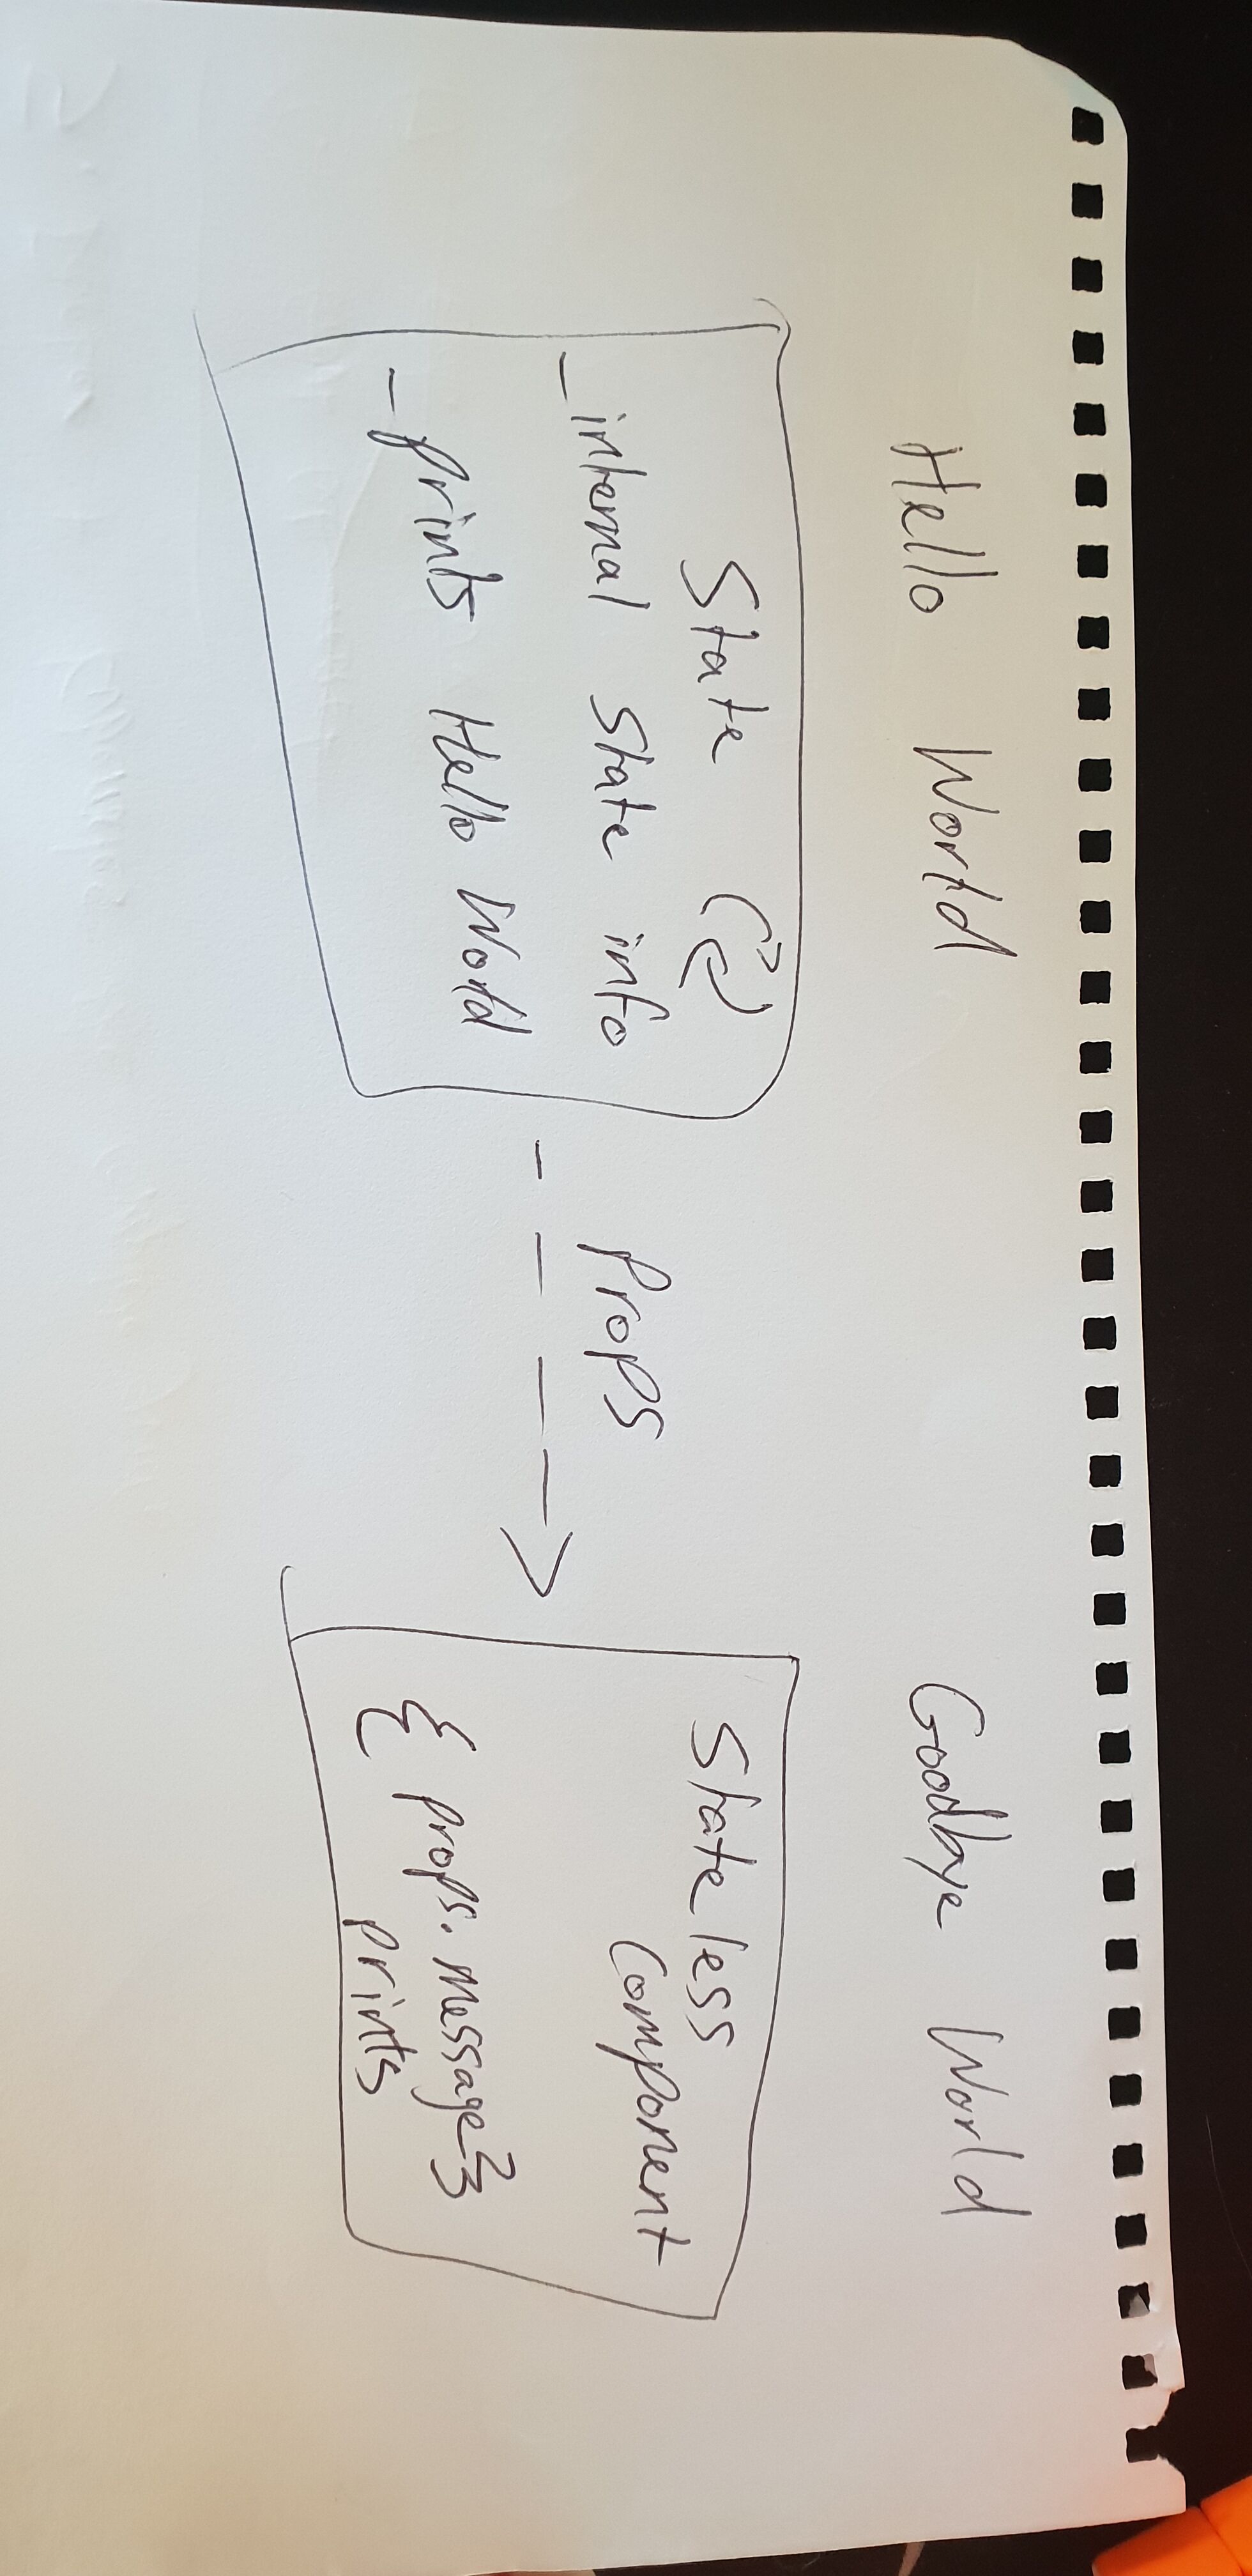 Hello World
State ({})
- internal State info
- prints Hello World
Props
Goodbye World
Stateless
Component
{ props.message }
prints